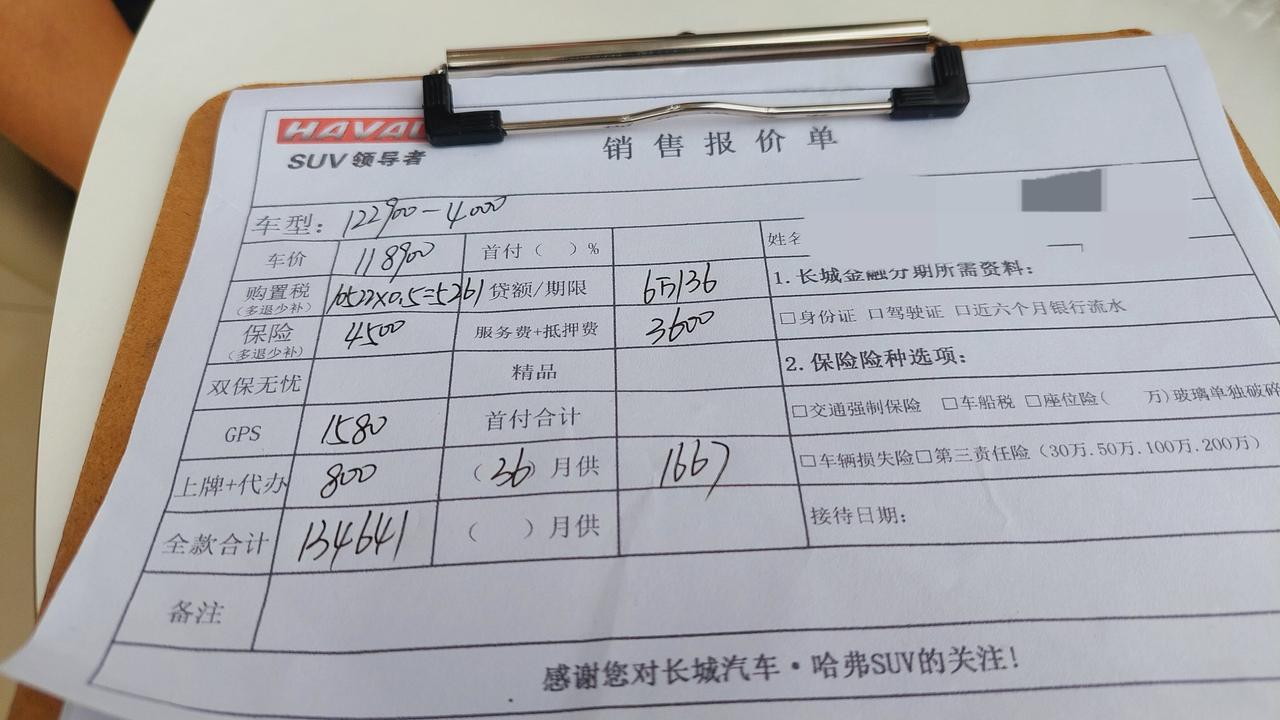 HAVAL
SUV领导者
销售报价单
车型：122900-4000
车价 118900 首付（ ）% 姓名
购置税（多退少补） 10522x0.5=5261 贷额/期限 6万/36 1.长城金融分期所需资料：
保险（多退少补） 4500 服务费+抵押费 3600 □身份证 □驾驶证 □近六个月银行流水
双保无忧 精品 2.保险险种选项：
GPS 1580 首付合计 □交通强制保险 □车船税 □座位险( 万)玻璃单独破碎
上牌+代办 800 （36）月供 1667 □车辆损失险□第三责任险（30万.50万.100万.200万）
全款合计 134641 （ ）月供 接待日期：
备注
感谢您对长城汽车·哈弗SUV的关注！